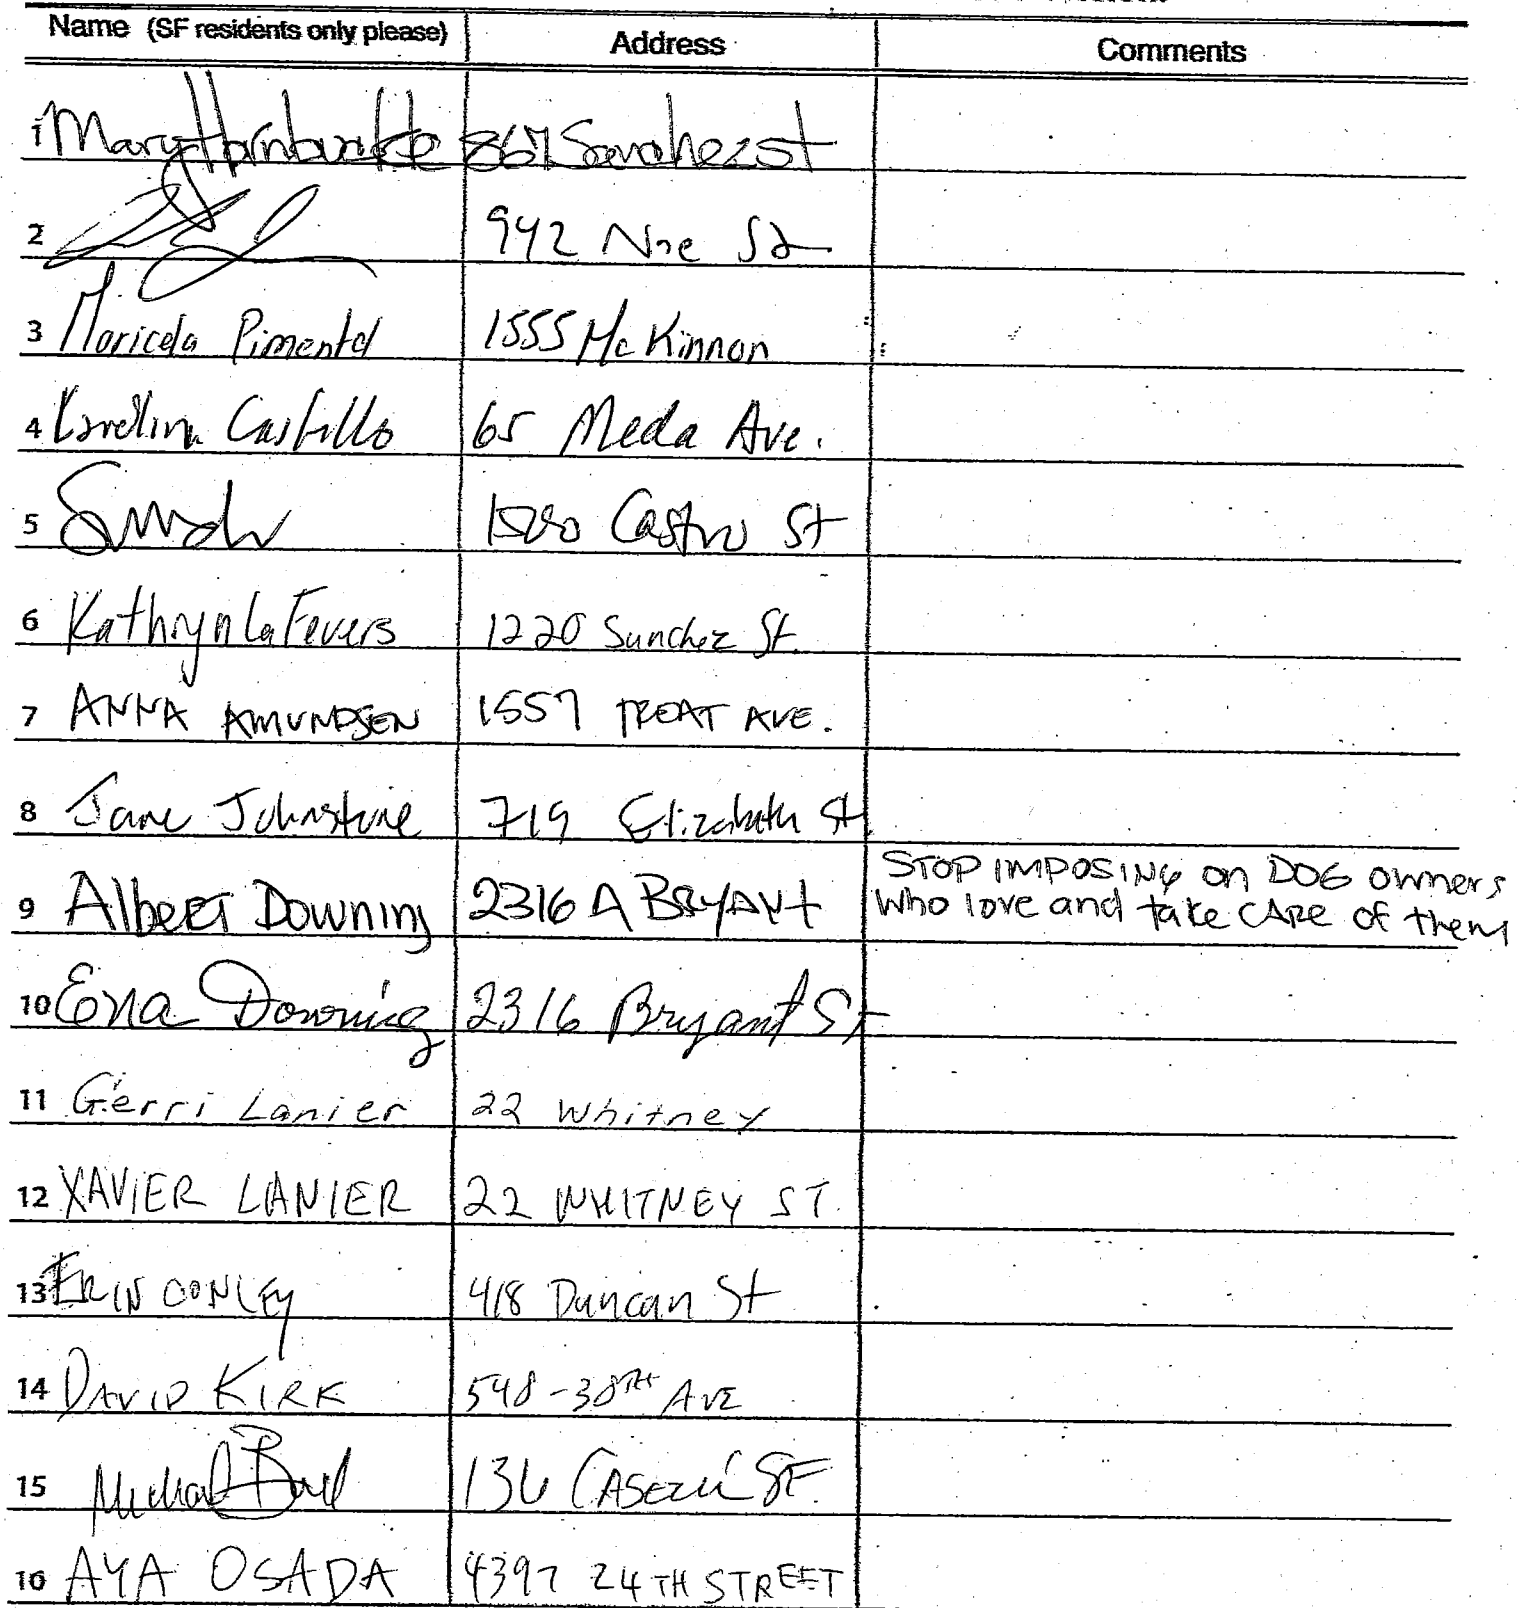 Name (SF residents only please) Address Comments
1 Mary Hornbuckle 867 Sanchez st
2 942 Noe St
3 Maricela Pimentel 1555 McKinnon
4 Castillo 65 Meda Ave.
5 Castro St
6 Kathryn LaFevers 1220 Sanchez St.
7 ANNA AMUNDSEN 1557 TREAT AVE.
8 Jane Johnstone 719 Elizabeth St
9 Albert Downing 2316 A BRYANT STOP IMPOSING on DOG owners
who love and take CARE of them
10 Ena Downing 2316 Bryant St
11 Gerri Lanier 22 Whitney
12 XAVIER LANIER 22 WHITNEY ST.
13 ERIN CONLEY 418 Duncan St
14 DAVID KIRK 548-38TH AVE
15 Michael 136
16 AYA OSADA 4397 24TH STREET